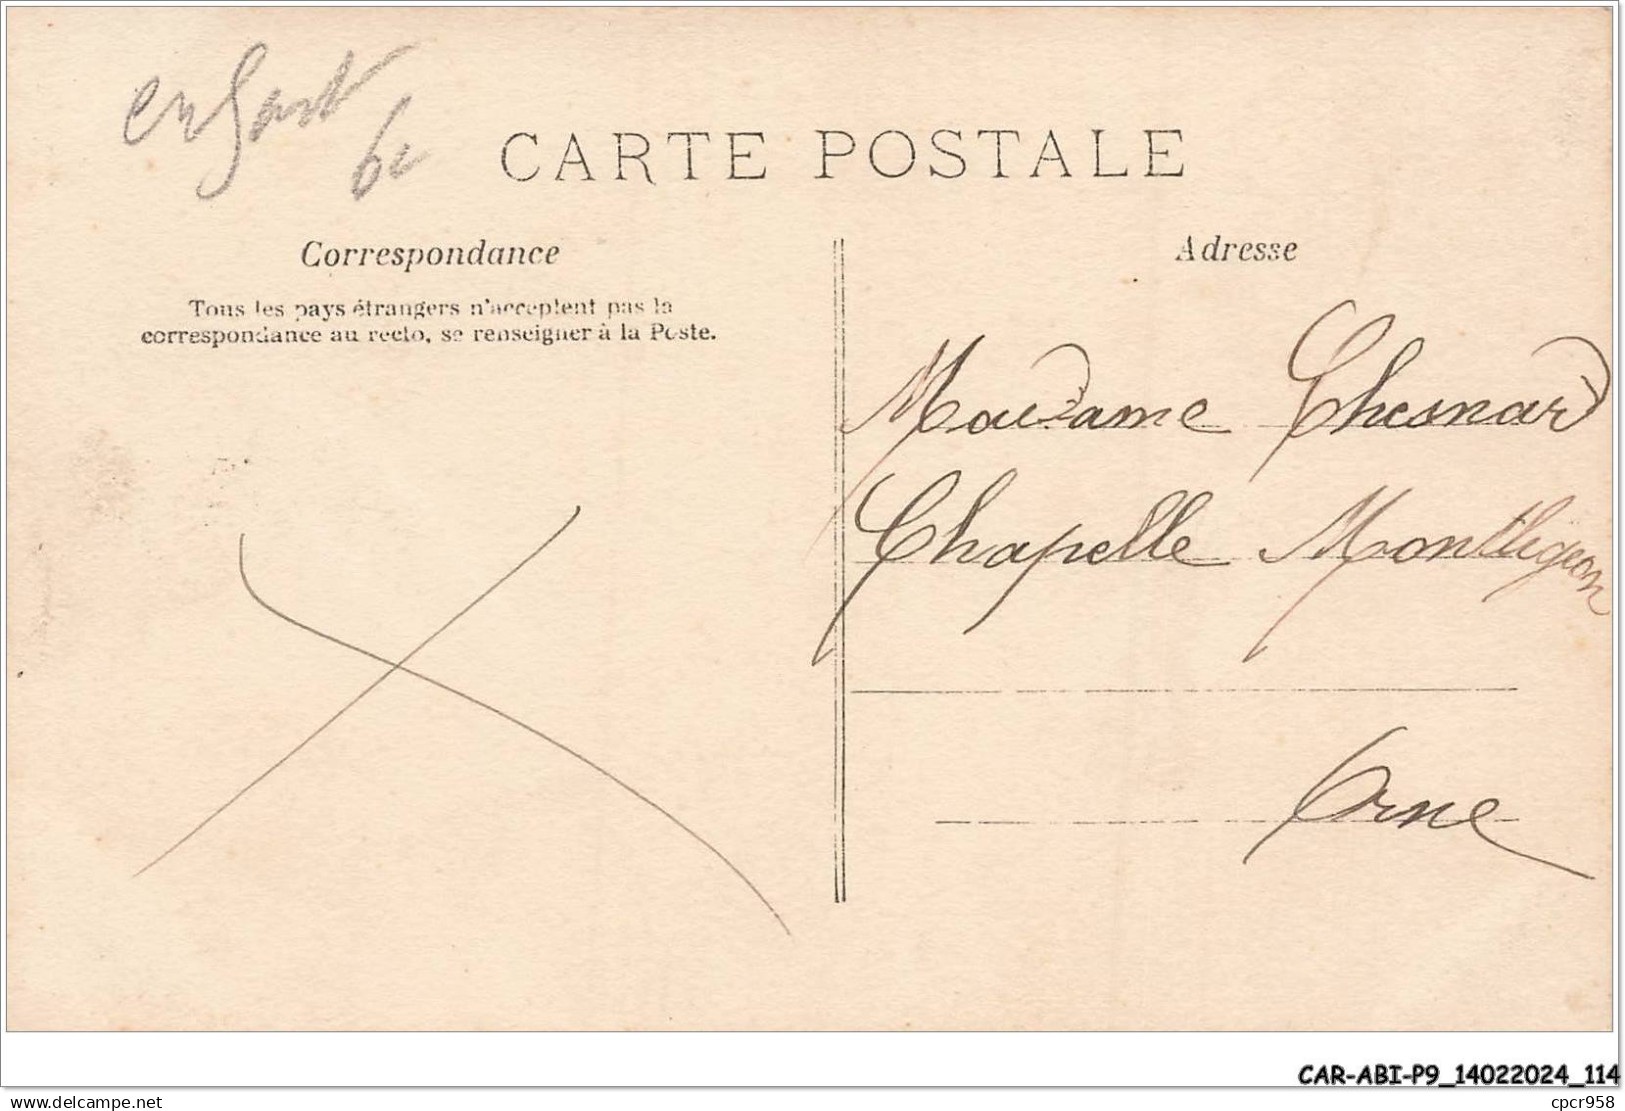 enfant
6c
CARTE POSTALE
Correspondance
Tous les pays étrangers n'acceptent pas la
correspondance au recto, se renseigner à la Poste.
Adresse
Madame Chesnard
Chapelle Montligeon
Orne
CAR-ABI-P9_14022024_114
www.delcampe.net
cpcr958